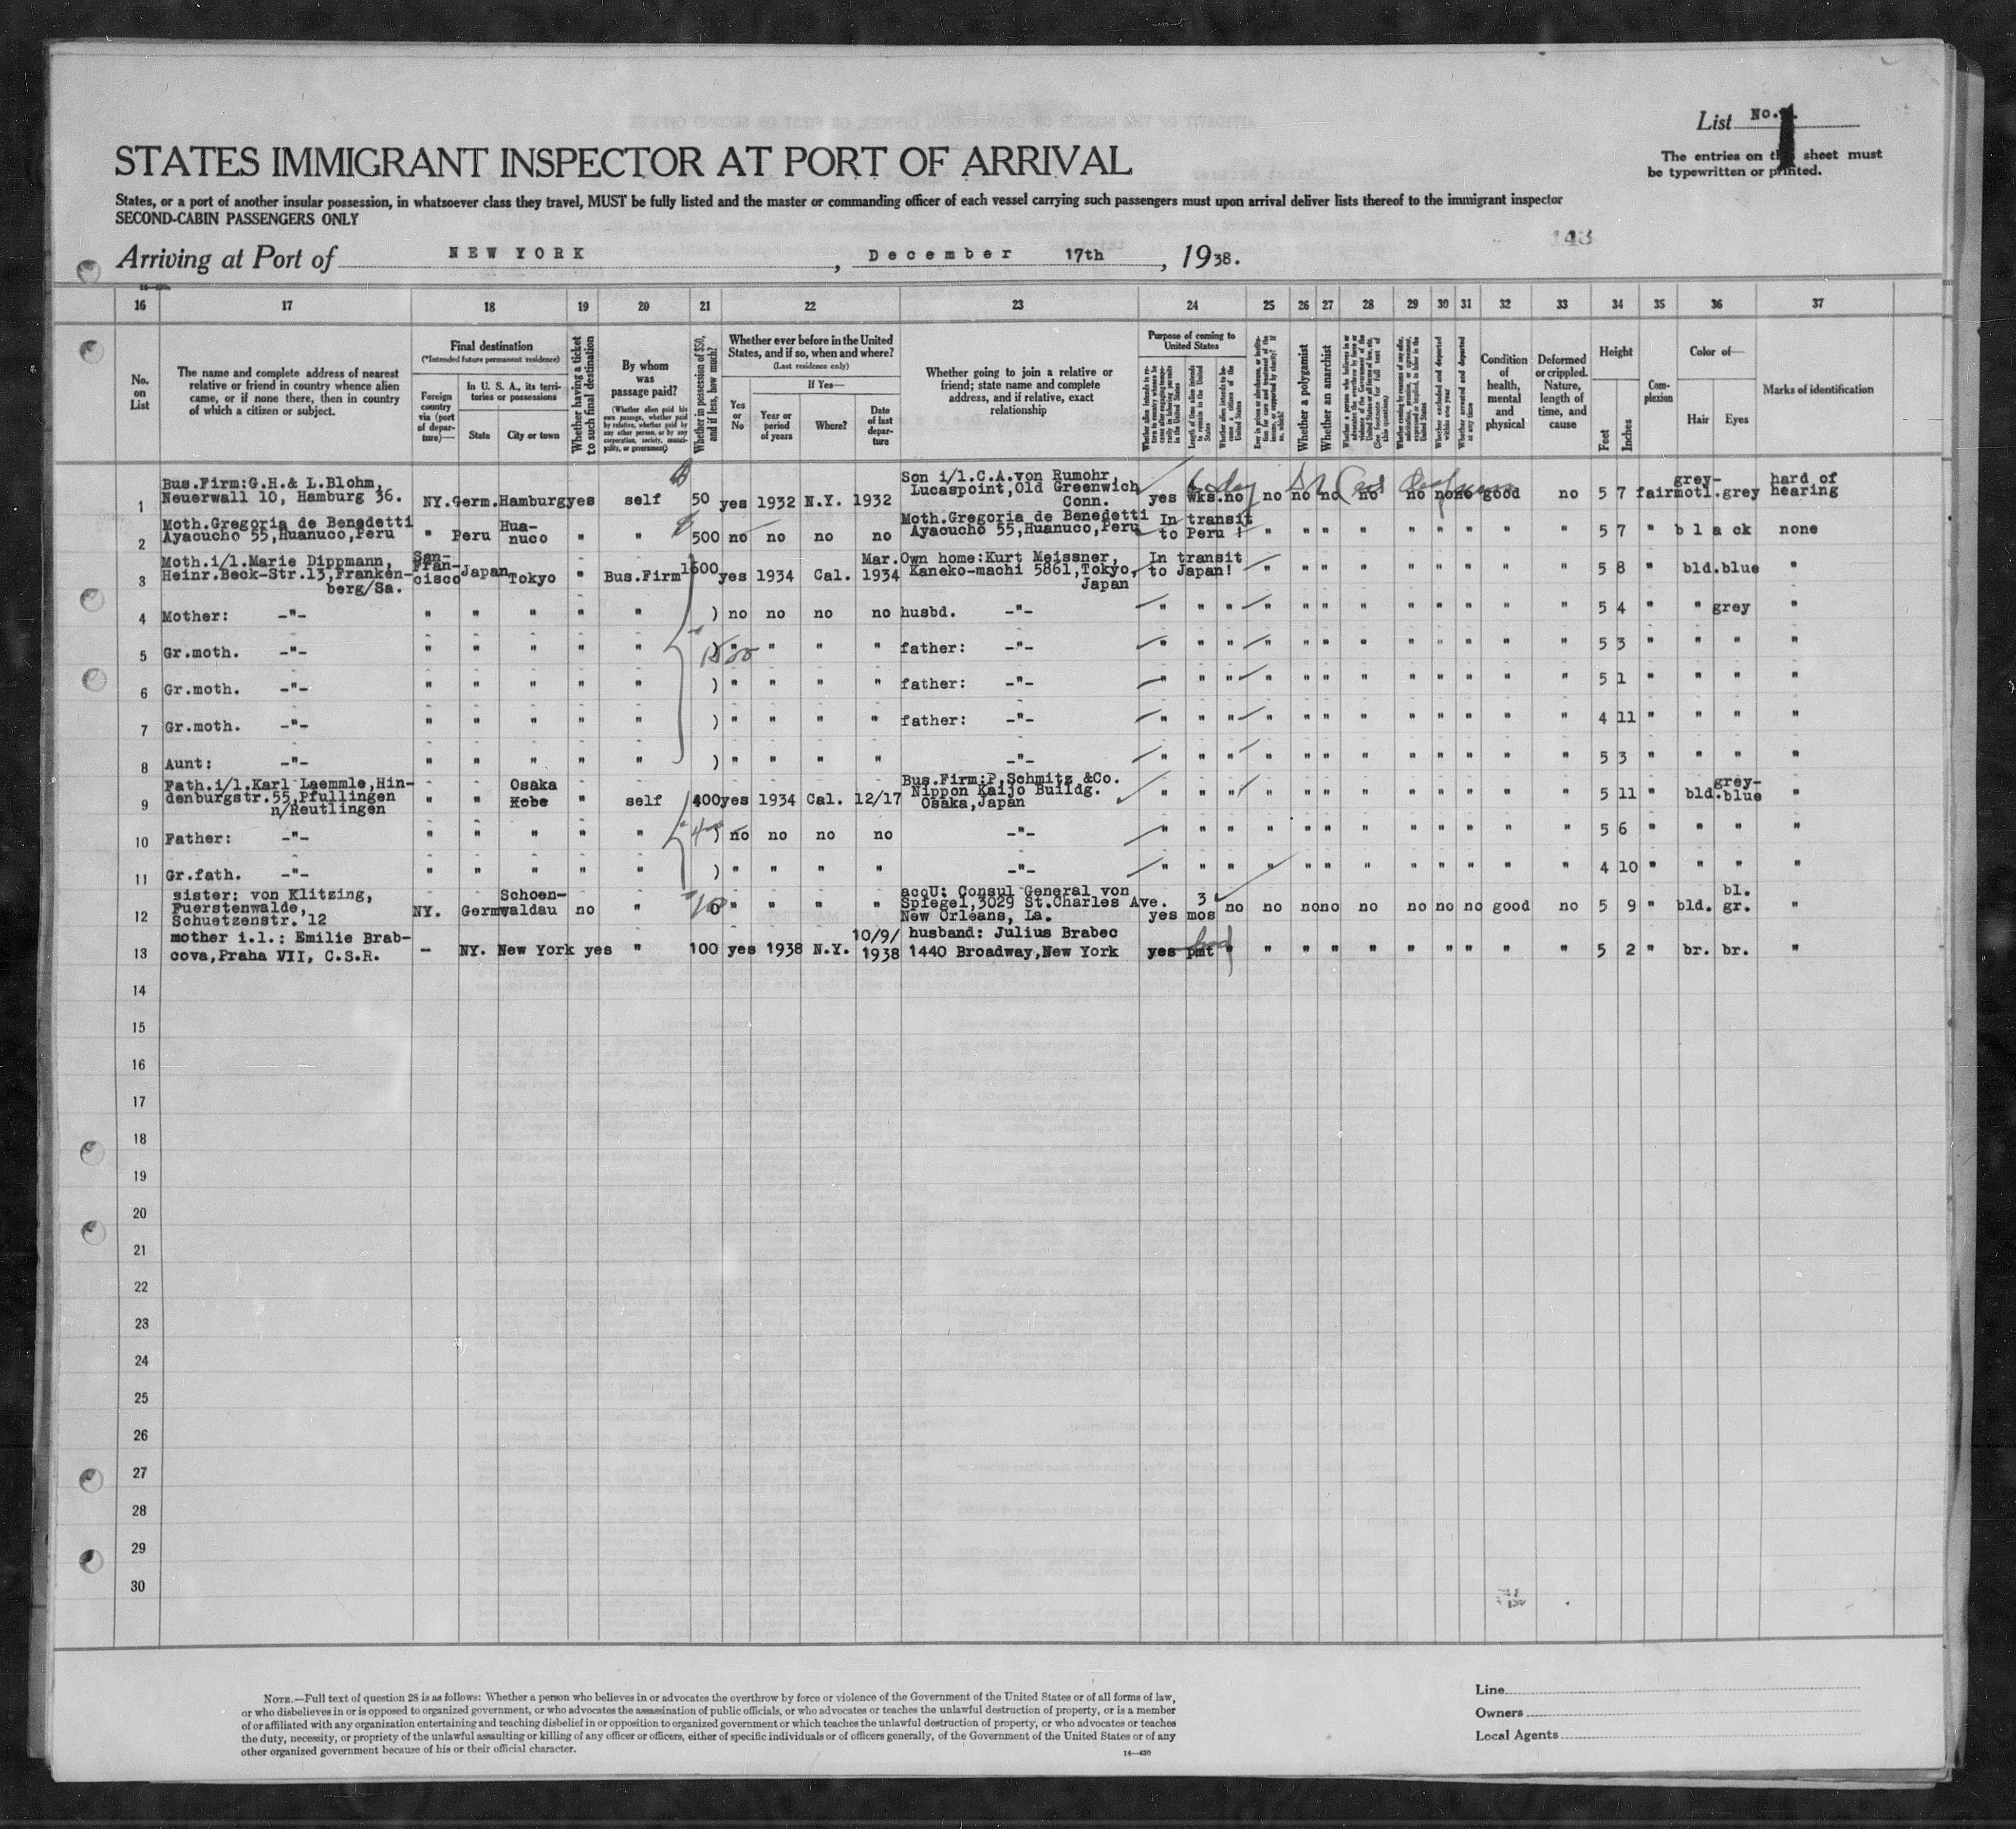 List No. 1
The entries on this sheet must
be typewritten or printed.
STATES IMMIGRANT INSPECTOR AT PORT OF ARRIVAL
States, or a port of another insular possession, in whatsoever class they travel, MUST be fully listed and the master or commanding officer of each vessel carrying such passengers must upon arrival deliver lists thereof to the immigrant inspector
SECOND-CABIN PASSENGERS ONLY
143
Arriving at Port of NEW YORK, December 17th, 1938.
16 17 18 19 20 21 22 23 24 25 26 27 28 29 30 31 32 33 34 35 36 37
No. on List
The name and complete address of nearest relative or friend in country whence alien came, or if none there, then in country of which a citizen or subject.
Final destination
(*Intended future permanent residence)
Foreign country via (port of departure)—
In U. S. A., its territories or possessions
State
City or town
Whether having a ticket to such final destination
By whom was passage paid?
(Whether alien paid his own passage, whether paid by relative, whether paid by any other person, or by any corporation, society, municipality, or government)
Whether in possession of $50, and if less, how much?
Whether ever before in the United States, and if so, when and where?
(Last residence only)
Yes or No
If Yes—
Year or period of years
Where?
Date of last departure
Whether going to join a relative or friend; state name and complete address, and if relative, exact relationship
Purpose of coming to United States
Length of time alien intends to remain in the United States
Whether alien intends to become a citizen of the United States
Whether a polygamist
Whether an anarchist
Whether excluded and deported within one year
Whether arrested and deported at any time
Condition of health, mental and physical
Deformed or crippled. Nature, length of time, and cause
Height
Feet
Inches
Complexion
Color of—
Hair
Eyes
Marks of identification
1 Bus.Firm:G.H.& L.Blohm, Neuerwall 10, Hamburg 36. NY. Germ. Hamburg yes self 50 yes 1932 N.Y. 1932 Son i/l.C.A.von Rumohr, Lucaspoint,Old Greenwich Conn. yes wks. no no no no no no no no good no 5 7 fair grey-motl. grey hard of hearing
2 Moth.Gregoria de Benedetti Ayacucho 55,Huanuco,Peru " Peru Hua-nuco " " 500 no no no no Moth.Gregoria de Benedetti Ayacucho 55,Huanuco,Peru In transit to Peru ! " " " " " " " " " 5 7 " black none
3 Moth.i/l.Marie Dippmann, Heinr.Beck-Str.13,Franken-berg/Sa. San-Fran-cisco Japan Tokyo " Bus.Firm 1600 yes 1934 Cal. Mar. 1934 Own home:Kurt Meissner, Kaneko-machi 5861,Tokyo, Japan In transit to Japan! " " " " " " " " " 5 8 " bld. blue "
4 Mother: -"- " " " " " ) no no no no husbd. -"- " " " " " " " " " " " " 5 4 " " grey "
5 Gr.moth. -"- " " " " " 1500 " " " " father: -"- " " " " " " " " " " " " 5 3 " " " "
6 Gr.moth. -"- " " " " " ) " " " " father: -"- " " " " " " " " " " " " 5 1 " " " "
7 Gr.moth. -"- " " " " " ) " " " " father: -"- " " " " " " " " " " " " 4 11 " " " "
8 Aunt: -"- " " " " " ) " " " " -"- " " " " " " " " " " " " 5 3 " " " "
9 Fath.i/l.Karl Laemmle,Hin-denburgstr.55,Pfullingen n/Reutlingen " " Osaka Kobe " self 400 yes 1934 Cal. 12/17 Bus.Firm:P.Schmitz &Co. Nippon Kaijo Buildg. Osaka,Japan " " " " " " " " " " " " 5 11 " bld. grey-blue "
10 Father: -"- " " " " " ) no no no no -"- " " " " " " " " " " " " 5 6 " " " "
11 Gr.fath. -"- " " " " " ) " " " " -"- " " " " " " " " " " " " 4 10 " " " "
12 sister: von Klitzing, Fuerstenwalde, Schuetzenstr. 12 NY. Germ. Schoen-waldau no " " " " " acqU: Consul General von Spiegel,3029 St.Charles Ave. New Orleans, La. yes 3 mos no no no no no no no no good no 5 9 " bld. bl. gr. "
13 mother i.l.: Emilie Brab-cova,Praha VII, C.S.R. - NY. New York yes " 100 yes 1938 N.Y. 10/9/1938 husband: Julius Brabec 1440 Broadway,New York yes pmt " " " " " " " " " " 5 2 " br. br. "
14
15
16
17
18
19
20
21
22
23
24
25
26
27
28
29
30
NOTE.—Full text of question 28 is as follows: Whether a person who believes in or advocates the overthrow by force or violence of the Government of the United States or of all forms of law,
or who disbelieves in or is opposed to organized government, or who advocates the assassination of public officials, or who advocates or teaches the unlawful destruction of property, or is a member
of or affiliated with any organization entertaining and teaching disbelief in or opposition to organized government or which teaches the unlawful destruction of property, or who advocates or teaches
the duty, necessity, or propriety of the unlawful assaulting or killing of any officer or officers, either of specific individuals or of officers generally, of the Government of the United States or of any
other organized government because of his or their official character.
14—430
Line
Owners
Local Agents